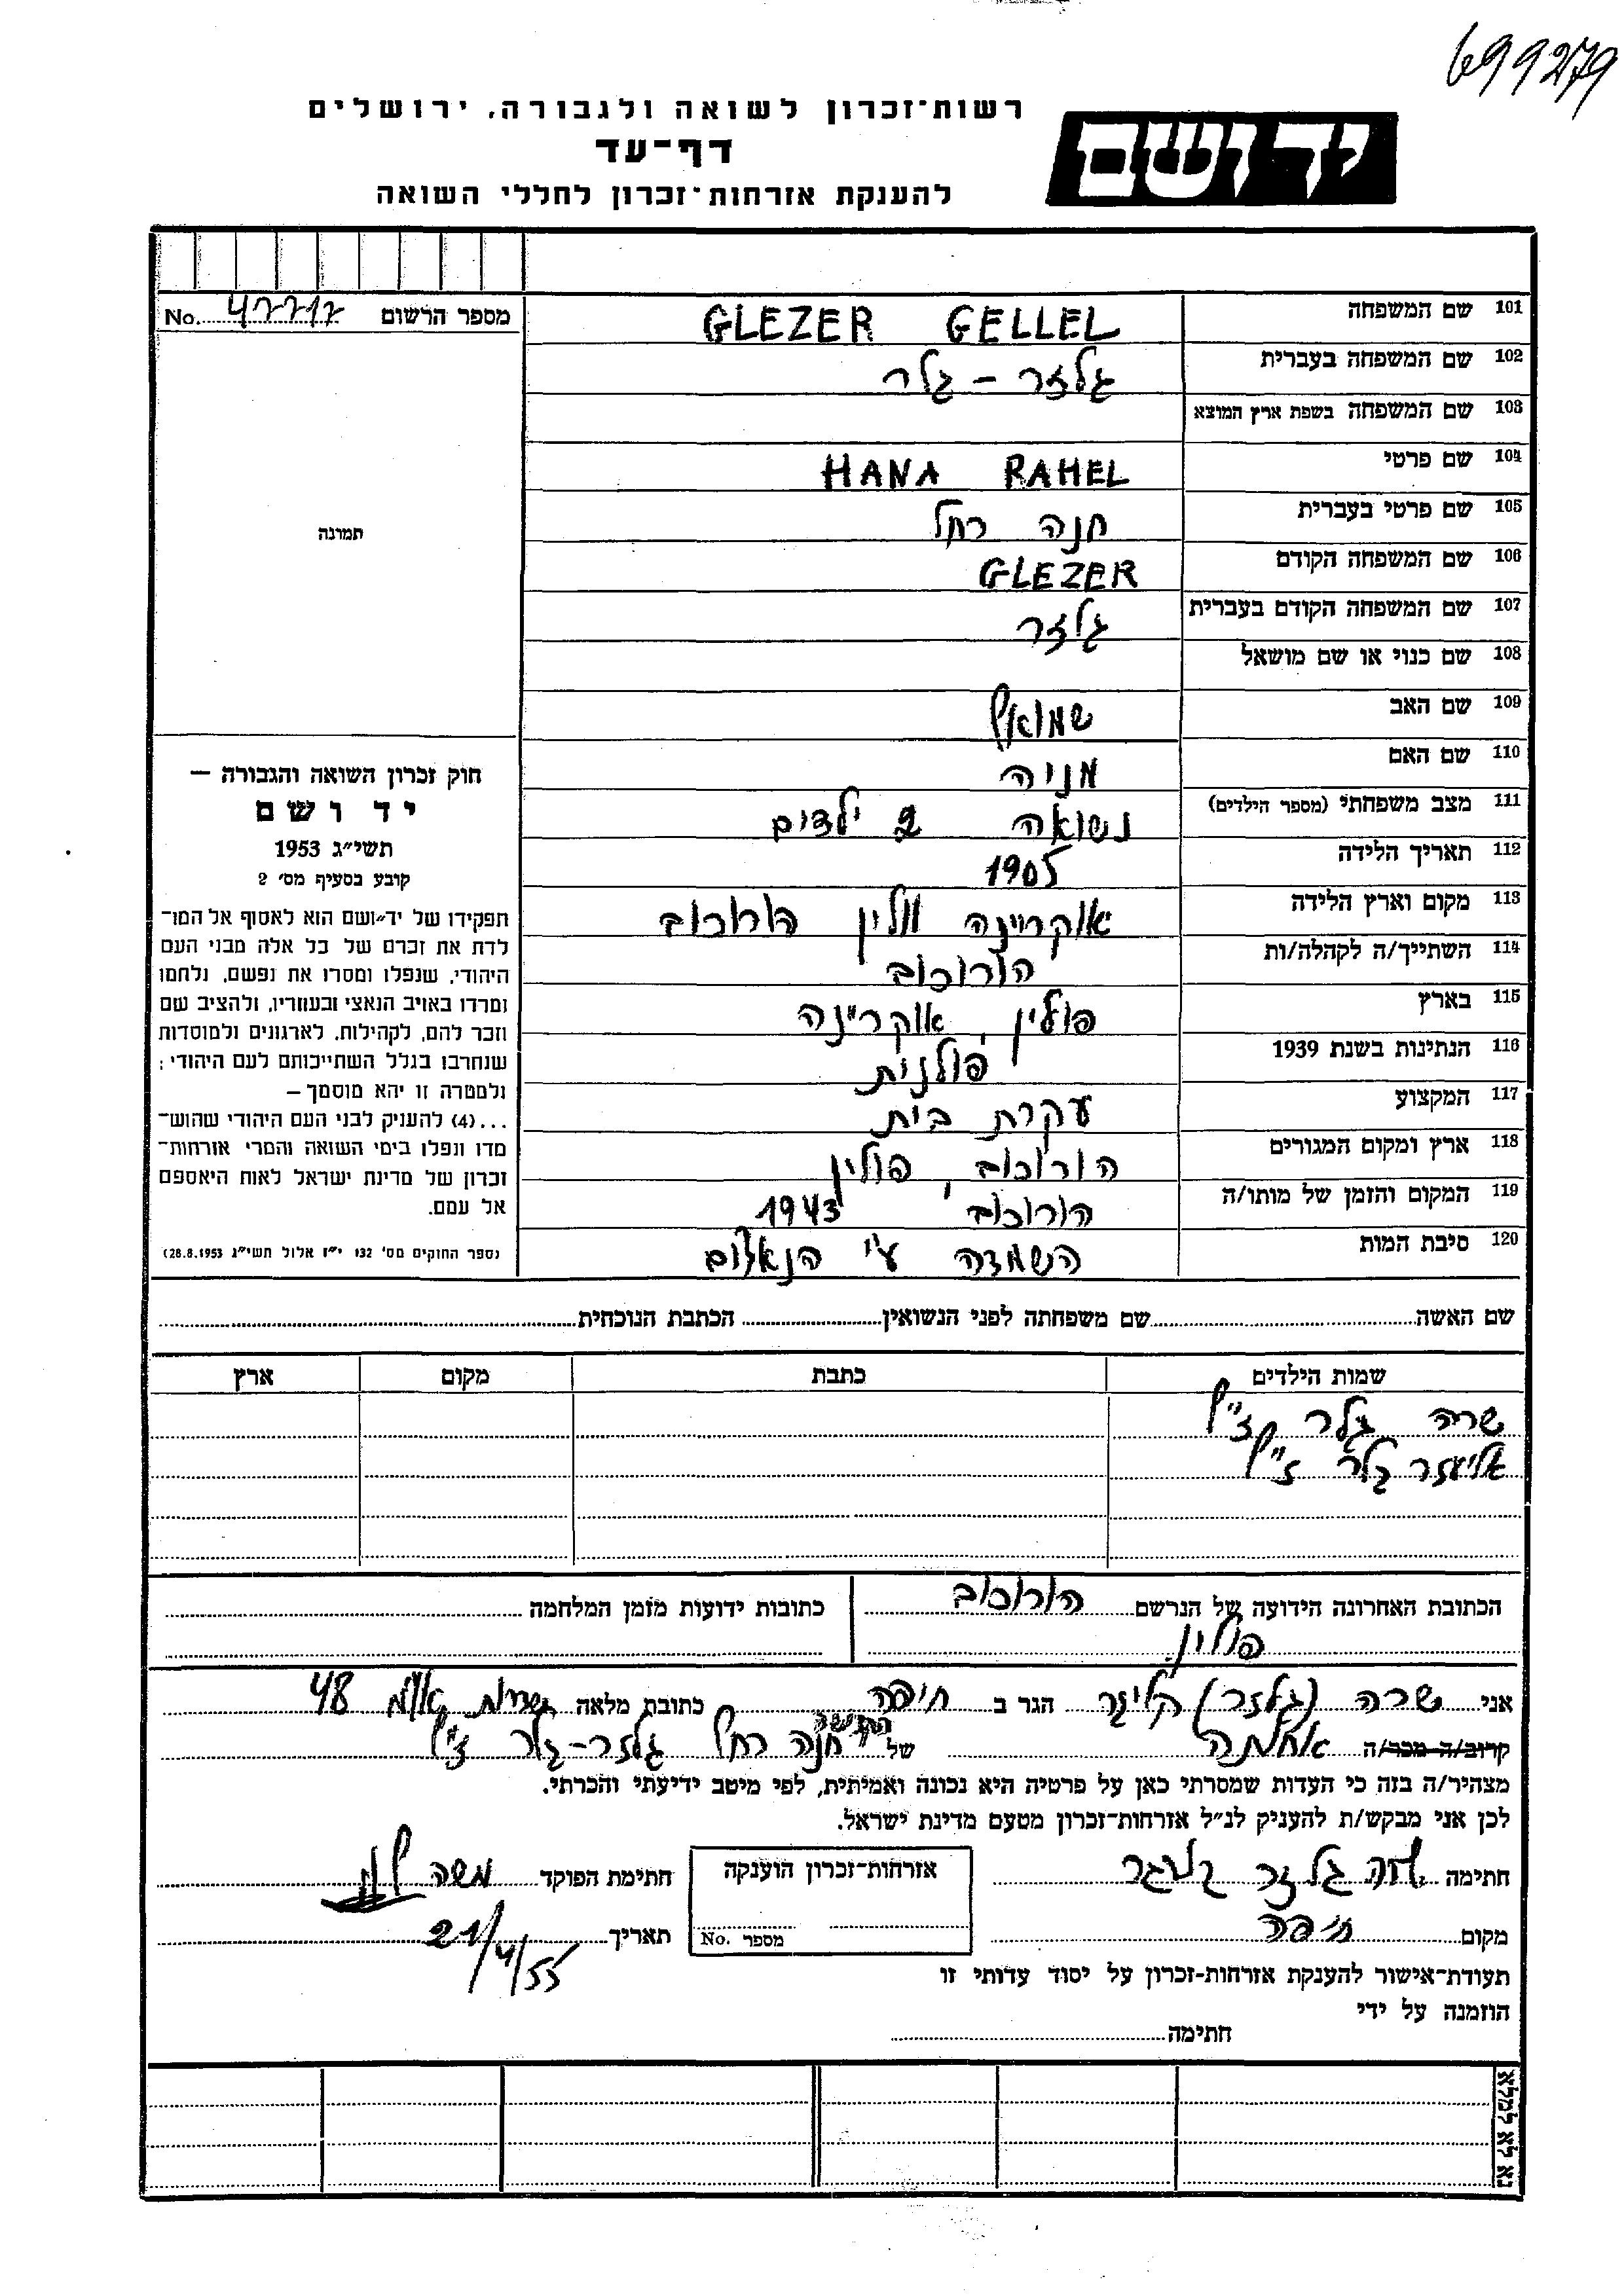 699279
יד ושם
רשות־זכרון לשואה ולגבורה, ירושלים
דף־עד
להענקת אזרחות־זכרון לחללי השואה
101 שם המשפחה GLEZER GELLEL
102 שם המשפחה בעברית גלזר – גלר
103 שם המשפחה בשפת ארץ המוצא
104 שם פרטי HANA RAHEL
105 שם פרטי בעברית חנה רחל
106 שם המשפחה הקודם GLEZER
107 שם המשפחה הקודם בעברית גלזר
108 שם כנוי או שם מושאל
109 שם האב שמואל
110 שם האם מניה
111 מצב משפחתי (מספר הילדים) נשואה 2 ילדים
112 תאריך הלידה 1905
113 מקום וארץ הלידה אוקריינה וולין הורוכוב
114 השתייך/ה לקהלה/ות הורוכוב
115 בארץ פולין, אוקריינה
116 הנתינות בשנת 1939 פולנית
117 המקצוע עקרת בית
118 ארץ ומקום המגורים הורוכוב, פולין
119 המקום והזמן של מותו/ה הורוכוב, 1943
120 סיבת המות השמדה ע"י הנאצים
מספר הרשום No.
תמונה
חוק זכרון השואה והגבורה —
יד ושם
תשי״ג 1953
קובע בסעיף מס׳ 2
תפקידו של יד״ושם הוא לאסוף אל המו־
לדת את זכרם של כל אלה מבני העם
היהודי, שנפלו ומסרו את נפשם, נלחמו
ומרדו באויב הנאצי ובעוזריו, ולהציב שם
וזכר להם, לקהילות, לארגונים ולמוסדות
שנחרבו בגלל השתייכותם לעם היהודי;
ולמטרה זו יהא מוסמך —
...(4) להעניק לבני העם היהודי שהוש־
מדו ונפלו בימי השואה והמרי אזרחות־
זכרון של מדינת ישראל לאות היאספם
אל עמם.
(ספר החוקים מס׳ 132 י״ז אלול תשי״ג 28.8.1953)
שם האשה שם משפחתה לפני הנשואין הכתבת הנוכחית
שמות הילדים כתבת מקום ארץ
שרה גלר ז"ל
אליעזר גלר ז"ל
הכתובת האחרונה הידועה של הנרשם הורוכוב
פולין
כתובות ידועות מזמן המלחמה
אני שרה (גלזר) קליגר הגר ב חיפה כתובת מלאה שדרות האו"ם 48
קרוב/ה מכר/ה אחותה של חנה רחל גלזר-גלר ז"ל
מצהיר/ה בזה כי העדות שמסרתי כאן על פרטיה היא נכונה ואמיתית, לפי מיטב ידיעתי והכרתי.
לכן אני מבקש/ת להעניק לנ״ל אזרחות־זכרון מטעם מדינת ישראל.
חתימה שרה גלזר קליגר
אזרחות־זכרון הוענקה
מספר No.
חתימת הפוקד משה
מקום חיפה
תאריך 21/4/55
תעודת־אישור להענקת אזרחות־זכרון על יסוד עדותי זו
הוזמנה על ידי
חתימה
נא לא למלא